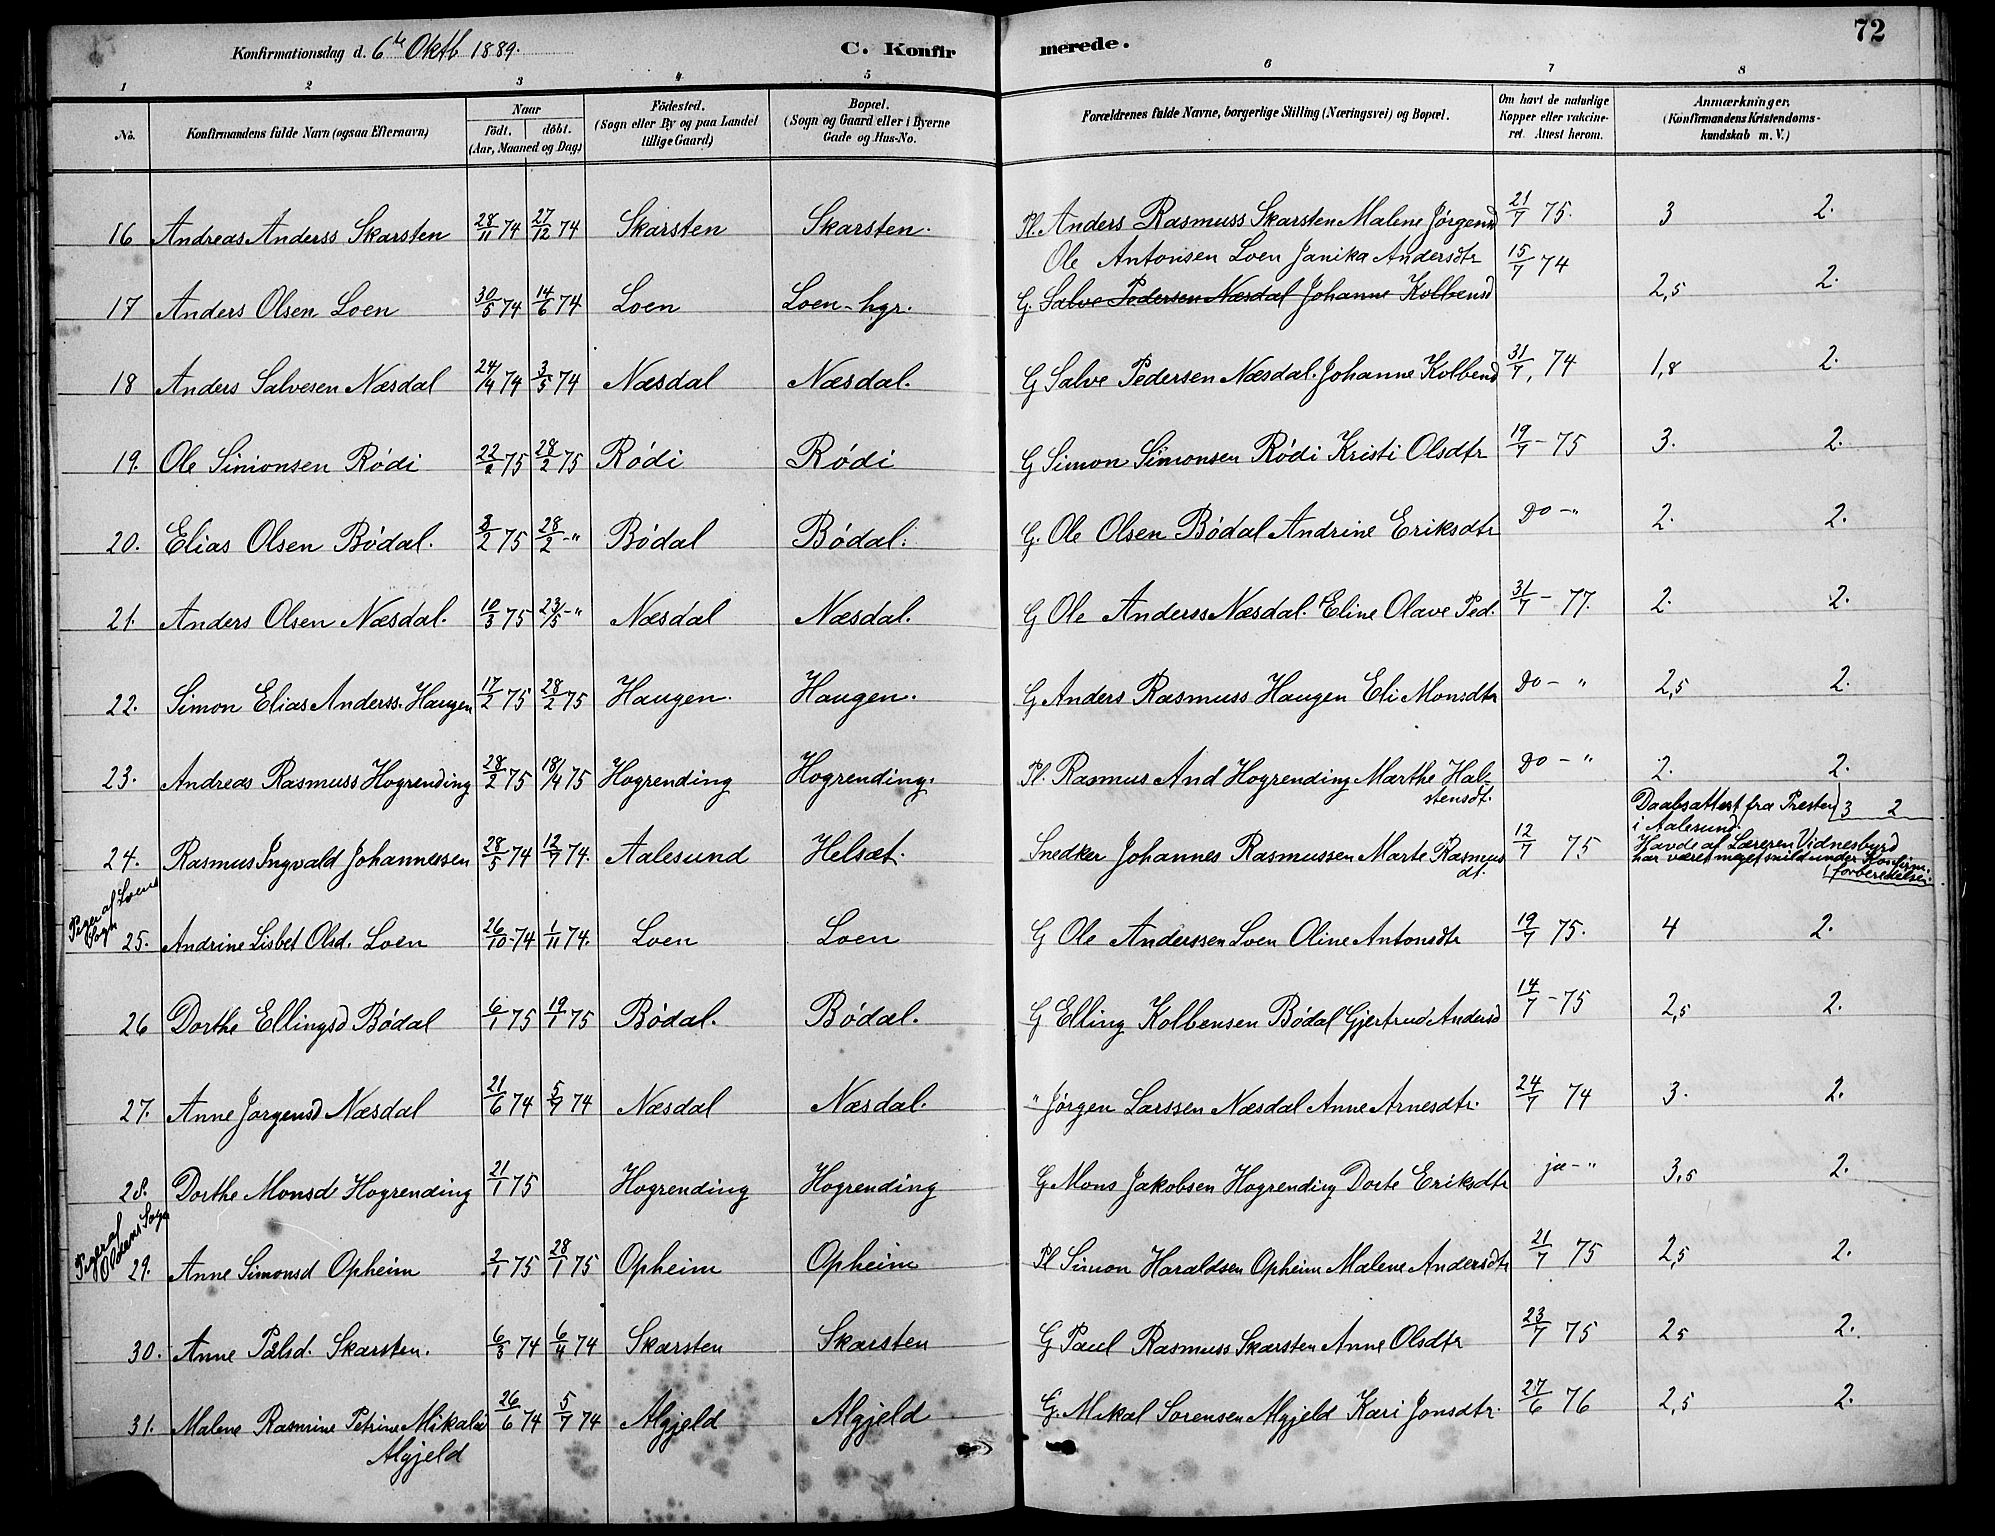 72
Konfirmationsdag d. 6te Oktb 1889. C. Konfirmerede.
1 2 3 4 5 6 7 8
No. Konfirmandens fulde Navn (ogsaa Efternavn) Naar födt. döbt. (Aar, Maaned og Dag) Födested. (Sogn eller By og paa Landet tillige Gaard) Bopæl. (Sogn og Gaard eller i Byerne Gade og Hus-No. Forældrenes fulde Navne, borgerlige Stilling (Næringsvei) og Bopæl. Om havt de naturlige Kopper eller vakcineret. Attest herom. Anmærkninger. (Konfirmandens Kristendomskundskab m. V.)
16 Andreas Anderss Skarsten 28/11 74 27/12 74 Skarsten Skarsten. Pl. Anders Rasmuss Skarsten Malene Jørgensd 21/7 75. 3 2.
Ole Antonsen Loen Janika Andersdtr 15/7 74
17 Anders Olsen Loen 30/5 74 14/6 74 Loen Loen-hgr. G. Salve Pedersen Næsdal Johanne Kolbensd 2,5 2.
18 Anders Salvesen Næsdal 24/4 74 3/5 74 Næsdal Næsdal. G Salve Pedersen Næsdal. Johanne Kolbensd 31/7, 74 1,8 2.
19. Ole Simonsen Rødi 22/2 75 28/2 75 Rødi Rødi G Simon Simonsen Rødi Kristi Olsdtr 19/7 - 75 3. 2.
20. Elias Olsen Bødal. 3/2 75 28/2 -" Bødal Bødal. G. Ole Olsen Bødal Andrine Eriksdtr Do -" 2. 2.
21. Anders Olsen Næsdal. 10/3 75 23/5 -" Næsdal Næsdal. G Ole Anderss Næsdal. Eline Olave Ped. 31/7 - 77. 2. 2.
22. Simon Elias Anderss. Haugen 17/2 75 28/2 75 Haugen. Haugen. G Anders Rasmuss Haugen Eli Monsdtr Do - " 2,5 2.
23. Andreas Rasmuss Hogrending 28/2 75 18/4 75 Hogrending Hogrending. Pl. Rasmus And Hogrending Marthe Hal- Do - " 2. 2.
stensdt.
Daabsattest fra Presten 3 2
i Aalesund.
24. Rasmus Ingvald Johannessen 28/5 74 12/7 74. Aalesund Helsæt. Snedker Johannes Rasmussen Marte Rasmus 12/7 75 Havde af Læreren Vidnesbyrd
dt. har været meget snild under Konfirm.
forberedelsen.
Piger af Loens
Sogn
25. Andrine Lisbet Olsd. Loen 26/10 74 1/11 74. Loen Loen G Ole Anderssen Loen Oline Antonsdtr 19/7 75. 4 2.
26 Dorthe Ellingsd Bødal 6/1 75 19/1 75 Bødal. Bødal. G Elling Kolbensen Bødal Gjertrud Andersd 14/7 - 75 2,5 2.
27. Anne Jørgensd Næsdal 21/6 74 5/7 74 Næsdal Næsdal. " Jørgen Larssen Næsdal Anne Arnesdtr. 24/7 74 3. 2.
28. Dorthe Monsd Hogrending 21/1 75 Hogrending Hogrending G Mons Jakobsen Hogrending Dorte Eriksdtr ja - " 3,5 2.
Piger af
Oldens Sogn
29. Anne Simonsd Opheim 2/1 75 28/1 75 Opheim Opheim Pl Simon Haraldsen Opheim Malene Andersdtr 21/7 75 2,5 2.
30. Anne Pålsd. Skarsten. 6/3 74 6/4 74 Skarsten Skarsten G Paul Rasmuss Skarsten Anne Olsdtr 23/7 75 25 2.
31. Malene Rasmine Petrine Mikalsd 26/6 74 5/7 74 Mgjeld Mgjeld G. Mikal Sørensen Mgjeld Kari Jonsdtr. 27/6 76 2,5 2.
Mgjeld